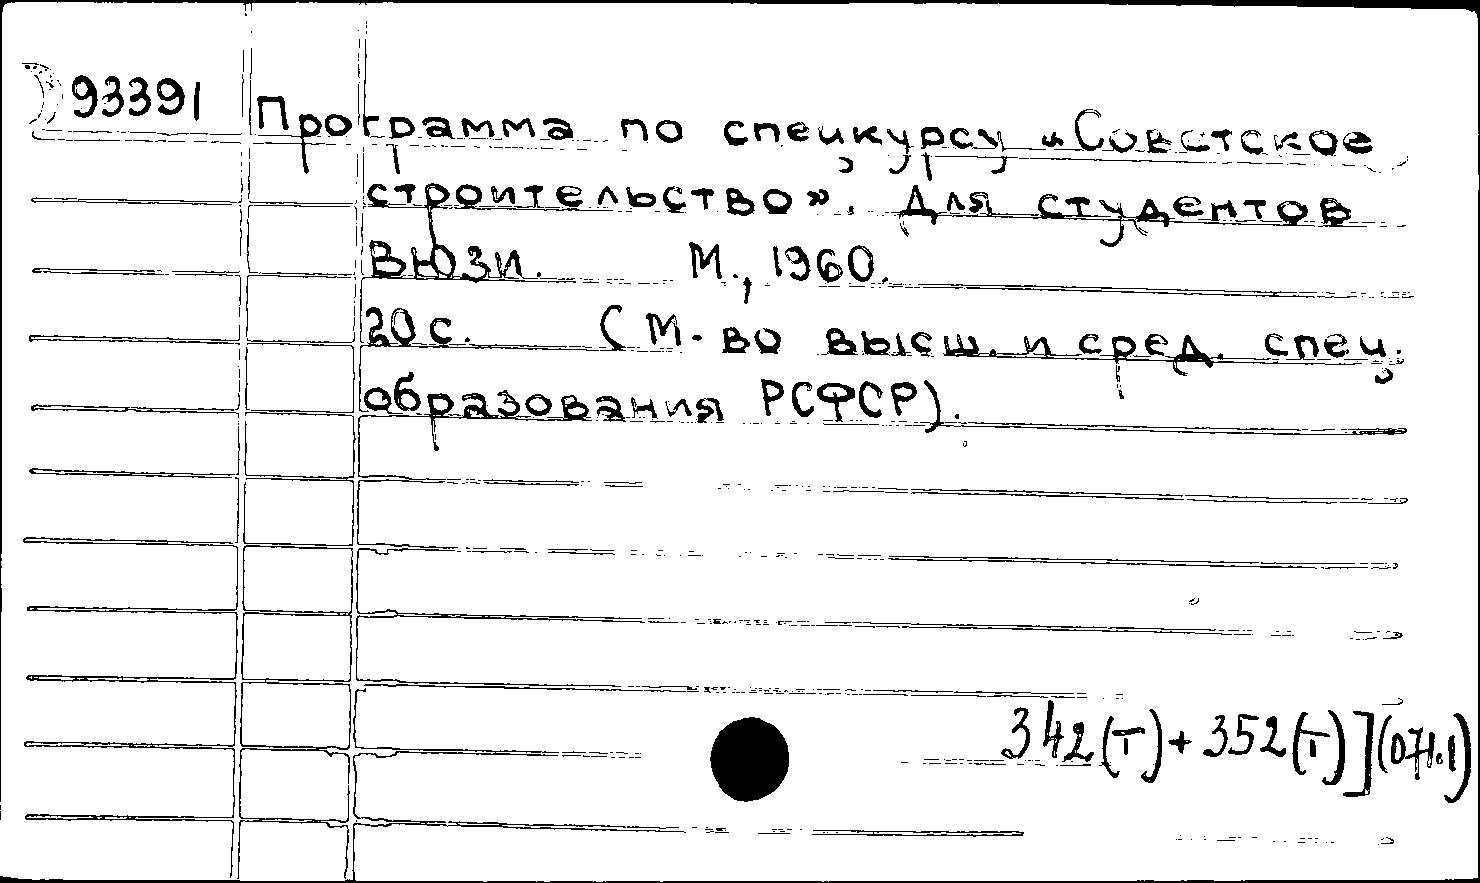 93391 Программа по спецкурсу «Советское
строительство». Для студентов
ВЮЗИ. М., 1960.
20 с. (М-во высш. и сред. спец.
образования РСФСР).
342(Т)+352(Т)](071.1)